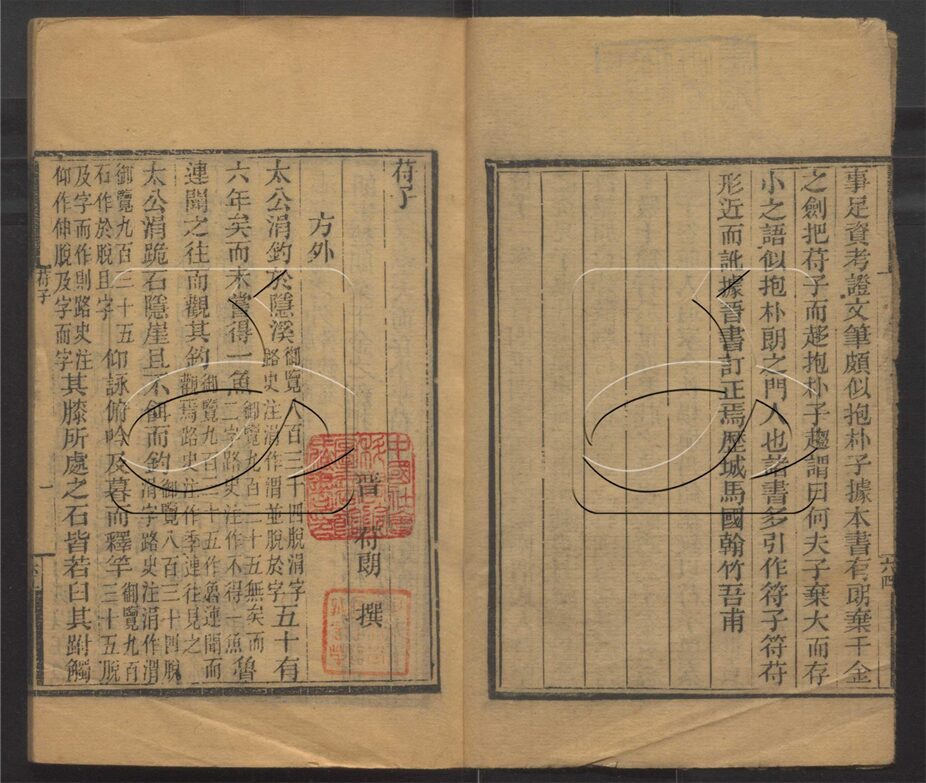 事足資考證文筆頗似抱朴子據本書有朗棄千金
之劍把苻子而趍抱朴子趨謂曰何夫子棄大而存
小之語似抱朴朗之門人也諸書多引作符子符苻
形近而訛據晉書訂正焉歷城馬國翰竹吾甫
苻子
晉 苻朗 撰
方外
太公涓釣於隱溪御覽八百三十四脫涓字路史注涓作渭並脫於字五十有
六年矣而未嘗得一魚御覽九百三十五無矣而二字路史注作不得一魚魯
連聞之往而觀其釣御覽九百三十五作魯連聞而觀焉路史注作季連往見之
太公涓跪石隱崖且不餌而釣御覽八百三十四脫涓字路史注涓作渭
御覽九百三十五石作於脫且字仰詠俯吟及暮而釋竿御覽九百三十五脫
及字而作則路史注仰作伸脫及字而字其膝所處之石皆若臼其跗觸
苻子
一